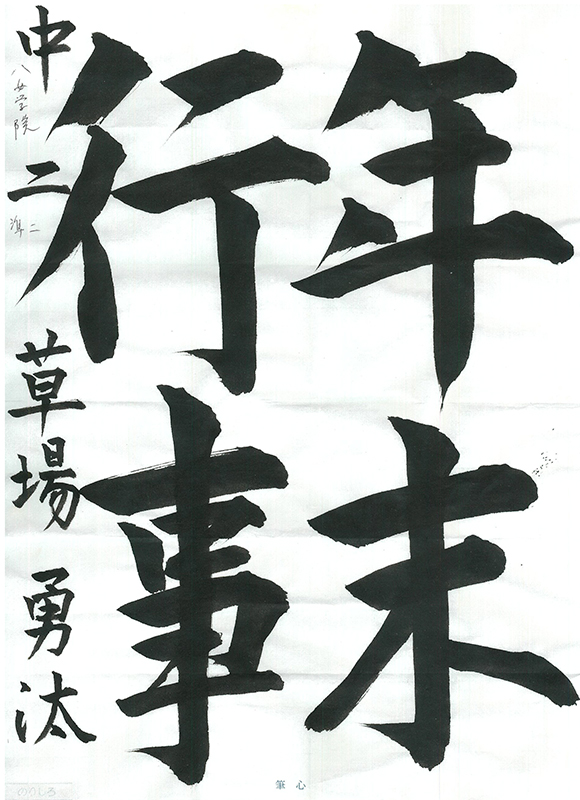 年末
行事
中二 草場 勇汰
八女学院 準二
心筆
のりしろ